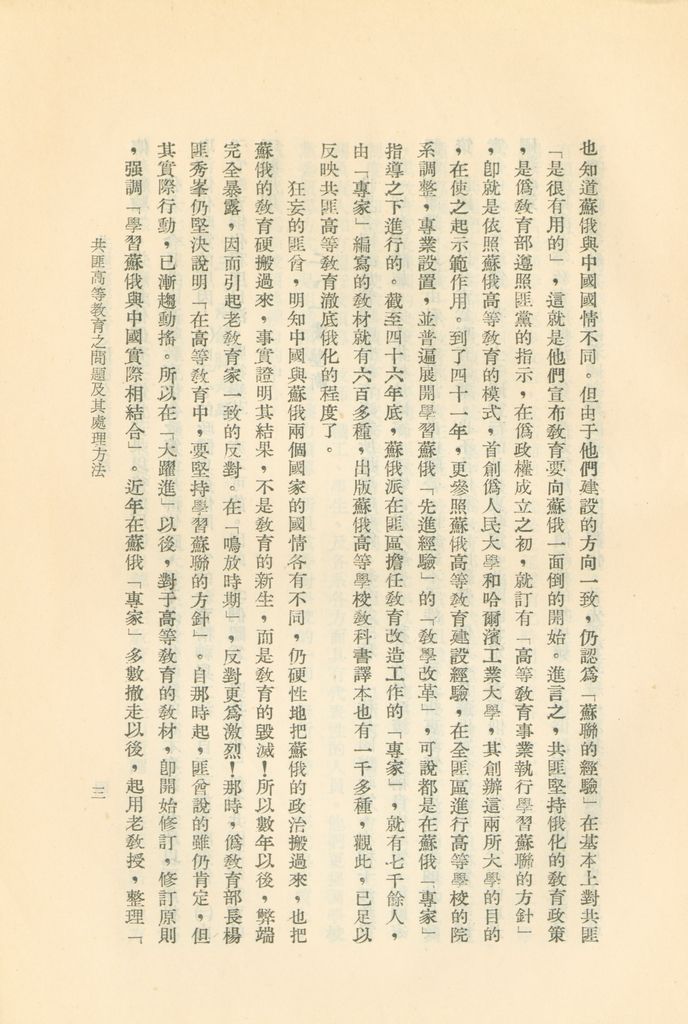 也知道蘇俄與中國國情不同。但由于他們建設的方向一致，仍認爲「蘇聯的經驗」在基本上對共匪
「是很有用的」，這就是他們宣布教育要向蘇俄一面倒的開始。進言之，共匪堅持俄化的教育政策
，是僞教育部遵照匪黨的指示，在僞政權成立之初，就訂有「高等教育事業執行學習蘇聯的方針」
，卽就是依照蘇俄高等教育的模式，首創僞人民大學和哈爾濱工業大學，其創辦這兩所大學的目的
，在使之起示範作用。到了四十一年，更參照蘇俄高等教育建設經驗，在全匪區進行高等學校的院
系調整，專業設置，並普遍展開學習蘇俄「先進經驗」的「教學改革」，可說都是在蘇俄「專家」
指導之下進行的。截至四十六年底，蘇俄派在匪區擔任教育改造工作的「專家」，就有七千餘人，
由「專家」編寫的教材就有六百多種，出版蘇俄高等學校教科書譯本也有一千多種，觀此，已足以
反映共匪高等教育澈底俄化的程度了。
狂妄的匪酋，明知中國與蘇俄兩個國家的國情各有不同，仍硬性地把蘇俄的政治搬過來，也把
蘇俄的教育硬搬過來，事實證明其結果，不是教育的新生，而是教育的毀滅！所以數年以後，弊端
完全暴露，因而引起老教育家一致的反對。在「鳴放時期」，反對更爲激烈！那時，僞教育部長楊
匪秀峯仍堅決說明「在高等教育中，要堅持學習蘇聯的方針」。自那時起，匪酋說的雖仍肯定，但
其實際行動，已漸趨動搖。所以在「大躍進」以後，對于高等教育的教材，卽開始修訂，修訂原則
，强調「學習蘇俄與中國實際相結合」。近年在蘇俄「專家」多數撤走以後，起用老教授，整理「
共匪高等教育之問題及其處理方法
三